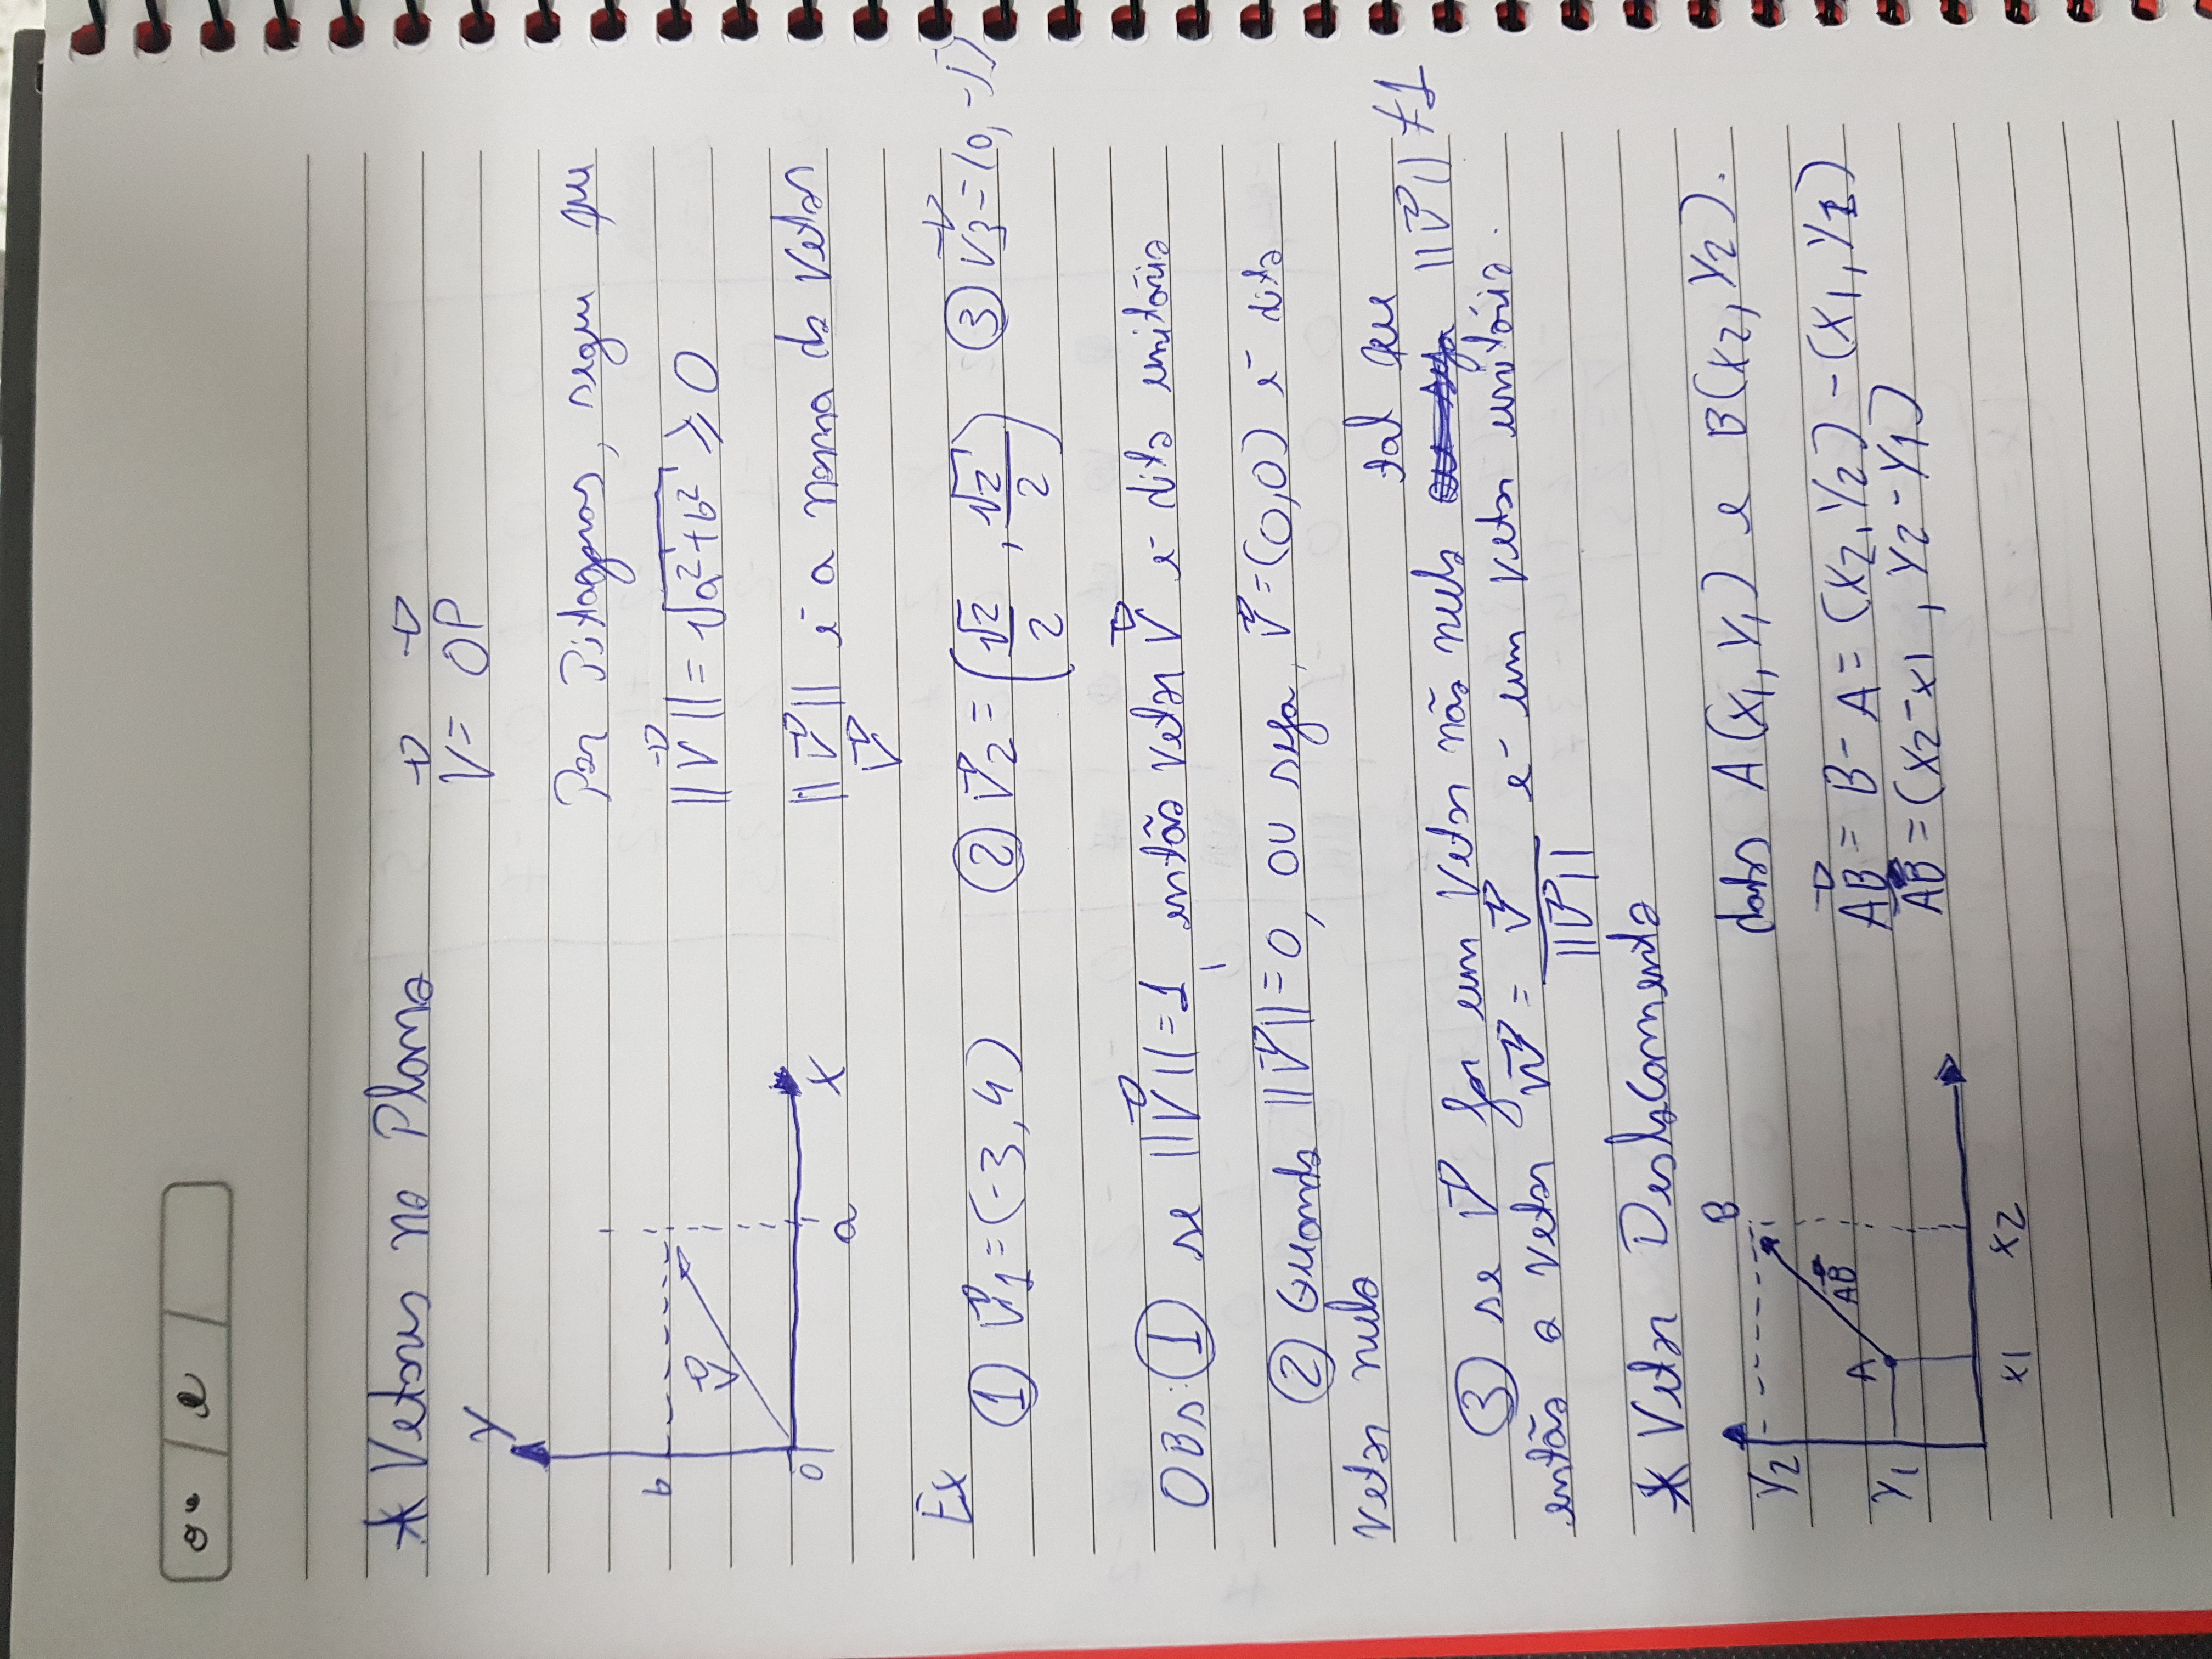 * Vetores no Plano
V⃗ = OP⃗
y
Por Pitagoras, segue que
b
V⃗
||V⃗|| = √a²+b² ≥ 0
0
a
x
||V⃗|| é a norma do Vetor
V⃗
Ex
① V⃗1 = (-3, 4) ② V⃗2 = (√2/2, √2/2) ③ V⃗3 = (0, -1)
OBS: ① se ||V⃗|| = 1, então vetor V⃗ é dito unitário
② Quando ||V⃗|| = 0, ou seja, V⃗ = (0,0) é dito
vetor nulo
tal que
③ se V⃗ for um vetor não nulo ou seja ||V⃗|| ≠ 1
então o vetor W⃗ = V⃗/||V⃗|| é um vetor unitário.
* Vetor Deslocamento
B
Y2
dados A(X1, Y1) e B(X2, Y2).
AB⃗
A
AB⃗ = B - A = (X2, Y2) - (X1, Y1)
Y1
AB⃗ = (X2-X1, Y2-Y1)
X1 X2